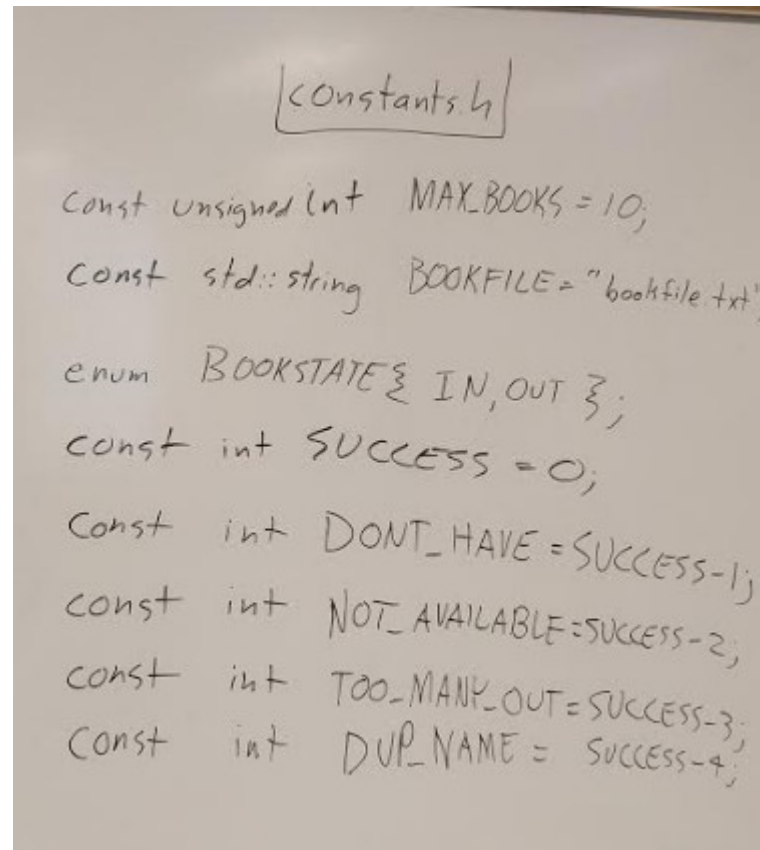 constants.h
const unsigned int MAX_BOOKS = 10;
const std::string BOOKFILE = "bookfile.txt"
enum BOOKSTATE { IN, OUT };
const int SUCCESS = 0;
const int DONT_HAVE = SUCCESS-1;
const int NOT_AVAILABLE = SUCCESS-2;
const int TOO_MANY_OUT = SUCCESS-3;
const int DUP_NAME = SUCCESS-4;